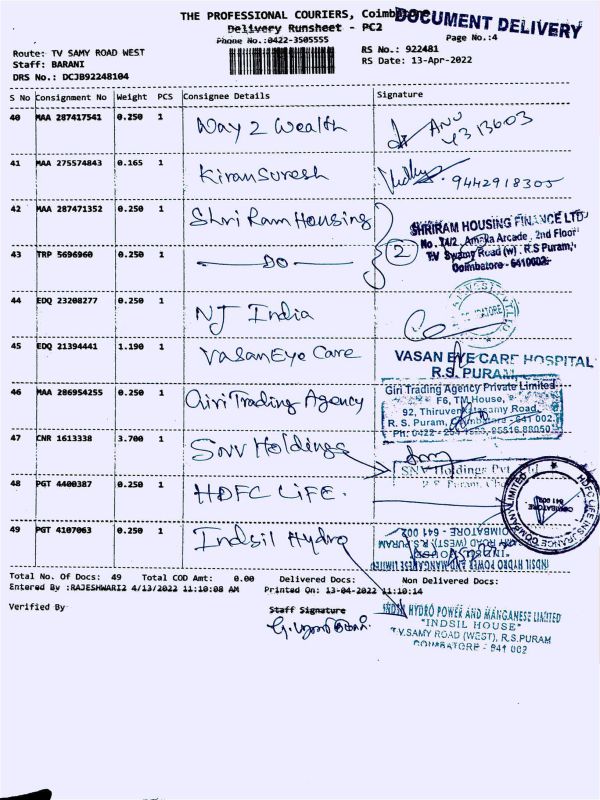 THE PROFESSIONAL COURIERS, Coimbatore
DOCUMENT DELIVERY
Delivery Runsheet - PC2
Page No.:4
Phone No.:0422-3505555
Route: TV SAMY ROAD WEST
RS No.: 922481
Staff: BARANI
RS Date: 13-Apr-2022
DRS No.: DCJB92248104
S No Consignment No Weight PCS Consignee Details Signature
40 MAA 287417541 0.250 1 Way 2 Wealth
ANU
4313603
41 MAA 275574843 0.165 1 Kiran Suresh
9442918305
42 MAA 287471352 0.250 1 Shri Ram Housing
2
SHRIRAM HOUSING FINANCE LTD
No. 74/2, Amska Arcade, 2nd Floor
T.V Swamy Road (w), R.S Puram,
Coimbatore - 6410002.
43 TRP 5696960 0.250 1 — DO —
44 EDQ 23208277 0.250 1 NJ India
45 EDQ 21394441 1.190 1 Vasan Eye Care
VASAN EYE CARE HOSPITAL
R.S. PURAM,
46 MAA 286954255 0.250 1 Giri Trading Agency
Giri Trading Agency Private Limited
F6, TM House,
92, Thiruvenkatasamy Road,
R. S. Puram, Coimbatore - 641 002.
Ph: 0422 -
47 CNR 1613338 3.700 1 SNV Holdings
SNV Holdings Pvt
R.S. Puram,
48 PGT 4400387 0.250 1 HDFC LIFE.
HDFC LIFE INSURANCE COMPANY LIMITED
COIMBATORE
641 002
49 PGT 4107063 0.250 1 Indsil Hydro
INDSIL HYDRO POWER AND MANGANESE LIMITED
"INDSIL HOUSE"
T.V.SAMY ROAD (WEST), R.S.PURAM
COIMBATORE - 641 002
Total No. Of Docs: 49 Total COD Amt: 0.00 Delivered Docs: Non Delivered Docs:
Entered By :RAJESHWARI2 4/13/2022 11:10:08 AM Printed On: 13-04-2022 11:10:14
Verified By
Staff Signature
INDSIL HYDRO POWER AND MANGANESE LIMITED
"INDSIL HOUSE"
T.V.SAMY ROAD (WEST), R.S.PURAM
COIMBATORE - 641 002